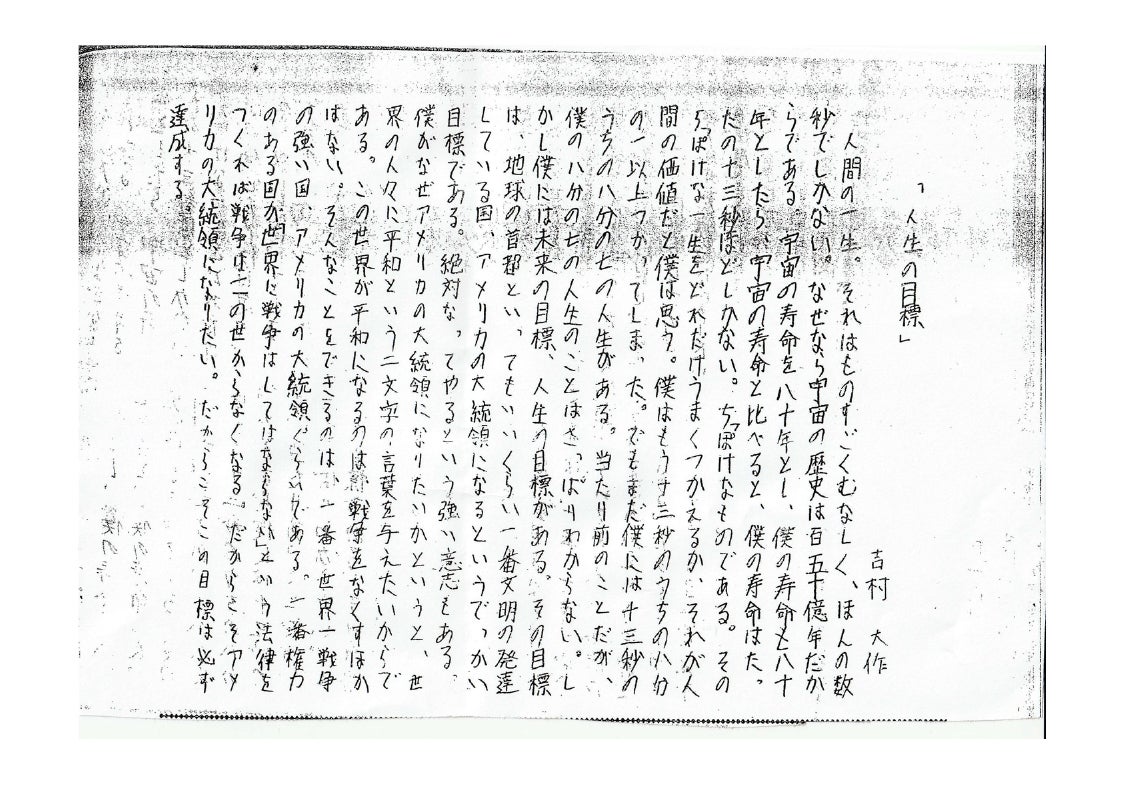 「人生の目標」
吉村　大作
人間の一生。それはものすごくむなしく、ほんの数
秒でしかない。なぜなら宇宙の歴史は百五十億年だか
らである。宇宙の寿命を八十年とし、僕の寿命も八十
年としたら、宇宙の寿命と比べると、僕の寿命はたっ
たの十三秒ほどしかない。ちっぽけなものである。その
ちっぽけな一生をどれだけうまくつかえるか、それが人
間の価値だと僕は思う。僕はもう十三秒のうちの八分
の一以上つかってしまった。でもまだ僕には十三秒の
うちの八分の七の人生がある。当たり前のことだが、
僕の八分の七の人生のことはさっぱりわからない。し
かし僕には未来の目標、人生の目標がある。その目標
は、地球の首都といってもいいくらい一番文明の発達
している国、アメリカの大統領になるというでっかい
目標である。絶対なってやるという強い意志もある。
僕がなぜアメリカの大統領になりたいかというと、世
界の人々に平和という二文字の言葉を与えたいからで
ある。この世界が平和になるのは、戦争をなくすほか
はない。そんなことをできるのは、一番、世界一戦争
の強い国、アメリカの大統領ぐらいである。一番権力
のある国が「世界に戦争はしてはならない」という法律を
つくれば戦争はこの世からなくなる。だからこそアメ
リカの大統領になりたい。だからこそこの目標は必ず
達成する。